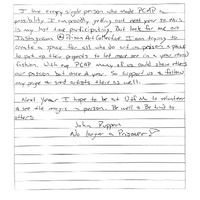 I love every single person who made PCAP a
possibility. I am possibly getting out next year so this
is my last time participating. But look for me on
Instagram @Prison Art Collective I am trying to
create a space for all who do art in prison a space
to put up their projects to let more see in a year round
fashion. With the PCAP many of us could show others
our passion but once a year. So support us & follow
my page & send artists there as well.
Next Year I hope to be at U of M to volunteer
& see the magic in person. Be well & Be kind to
others
John
No longer a Prisoner